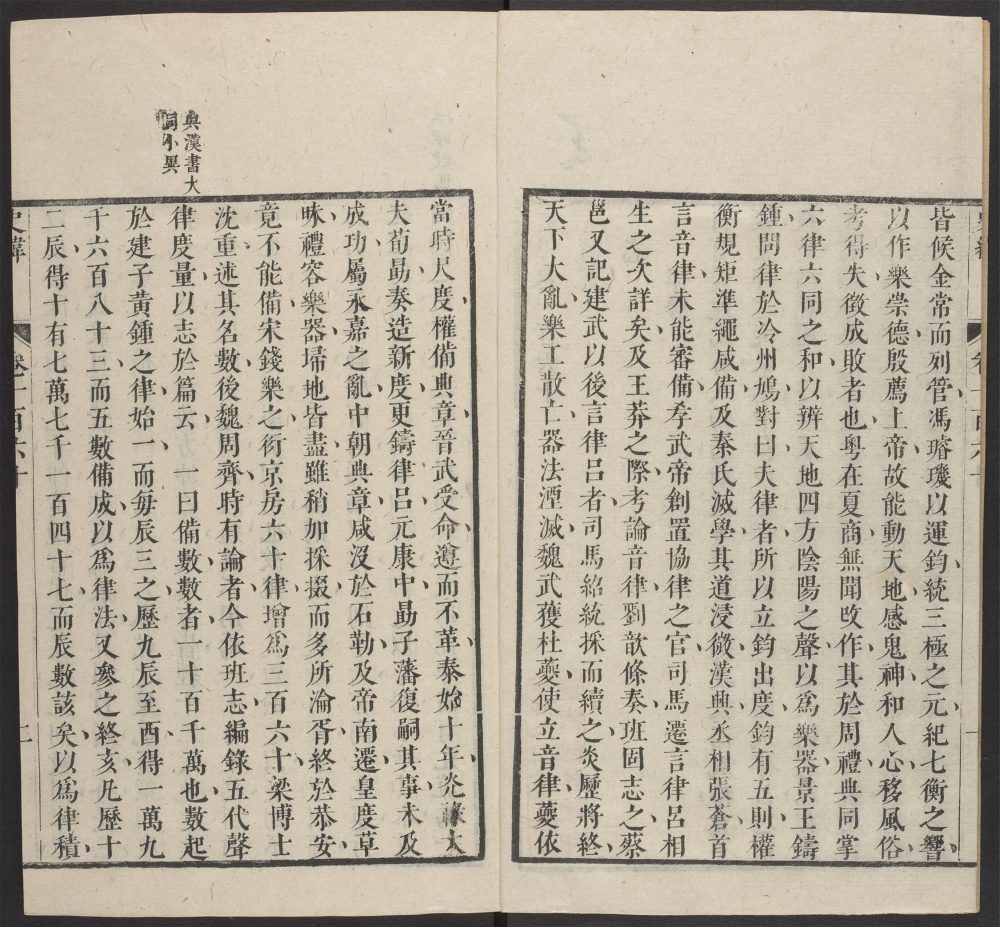 皆候金常而列管馮璿璣以運鈞統三極之元紀七衡之響
以作樂崇德殷薦上帝故能動天地感鬼神和人心移風俗
考得失徵成敗者也粵在夏商無聞改作其於周禮典同掌
六律六同之和以辨天地四方陰陽之聲以爲樂器景王鑄
鍾問律於泠州鳩對曰夫律者所以立鈞出度鈞有五則權
衡規矩準繩咸備及秦氏滅學其道浸微漢興丞相張蒼首
言音律未能審備孝武帝創置協律之官司馬遷言律呂相
生之次詳矣及王莽之際考論音律劉歆條奏班固志之蔡
邕又記建武以後言律呂者司馬紹統採而續之炎歷將終
天下大亂樂工散亡器法湮滅魏武獲杜夔使立音律夔依
當時尺度權備典章晉武受命遵而不革泰始十年光祿大
夫荀勗奏造新度更鑄律呂元康中勗子藩復嗣其事未及
成功屬永嘉之亂中朝典章咸沒於石勒及帝南遷皇度草
昧禮容樂器埽地皆盡雖稍加採掇而多所淪胥終於恭安
竟不能備宋錢樂之衍京房六十律增爲三百六十梁博士
沈重述其名數後魏周齊時有論者今依班志編錄五代聲
與漢書大
同小異
律度量以志於篇云 一曰備數數者一十百千萬也數起
於建子黃鍾之律始一而每辰三之歷九辰至酉得一萬九
千六百八十三而五數備成以爲律法又參之終亥凡歷十
二辰得十有七萬七千一百四十七而辰數該矣以爲律積
史緯 卷一百六十 二